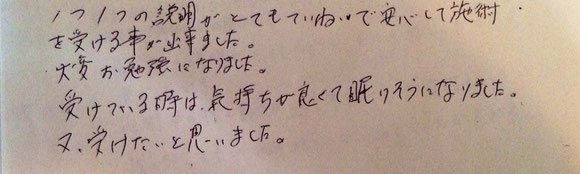 1つ1つの説明がとてもていねいで安心して施術
を受ける事が出来ました。
大変お勉強になりました。
受けている時は、気持ちが良くて眠りそうになりました。
又、受けたいと思いました。